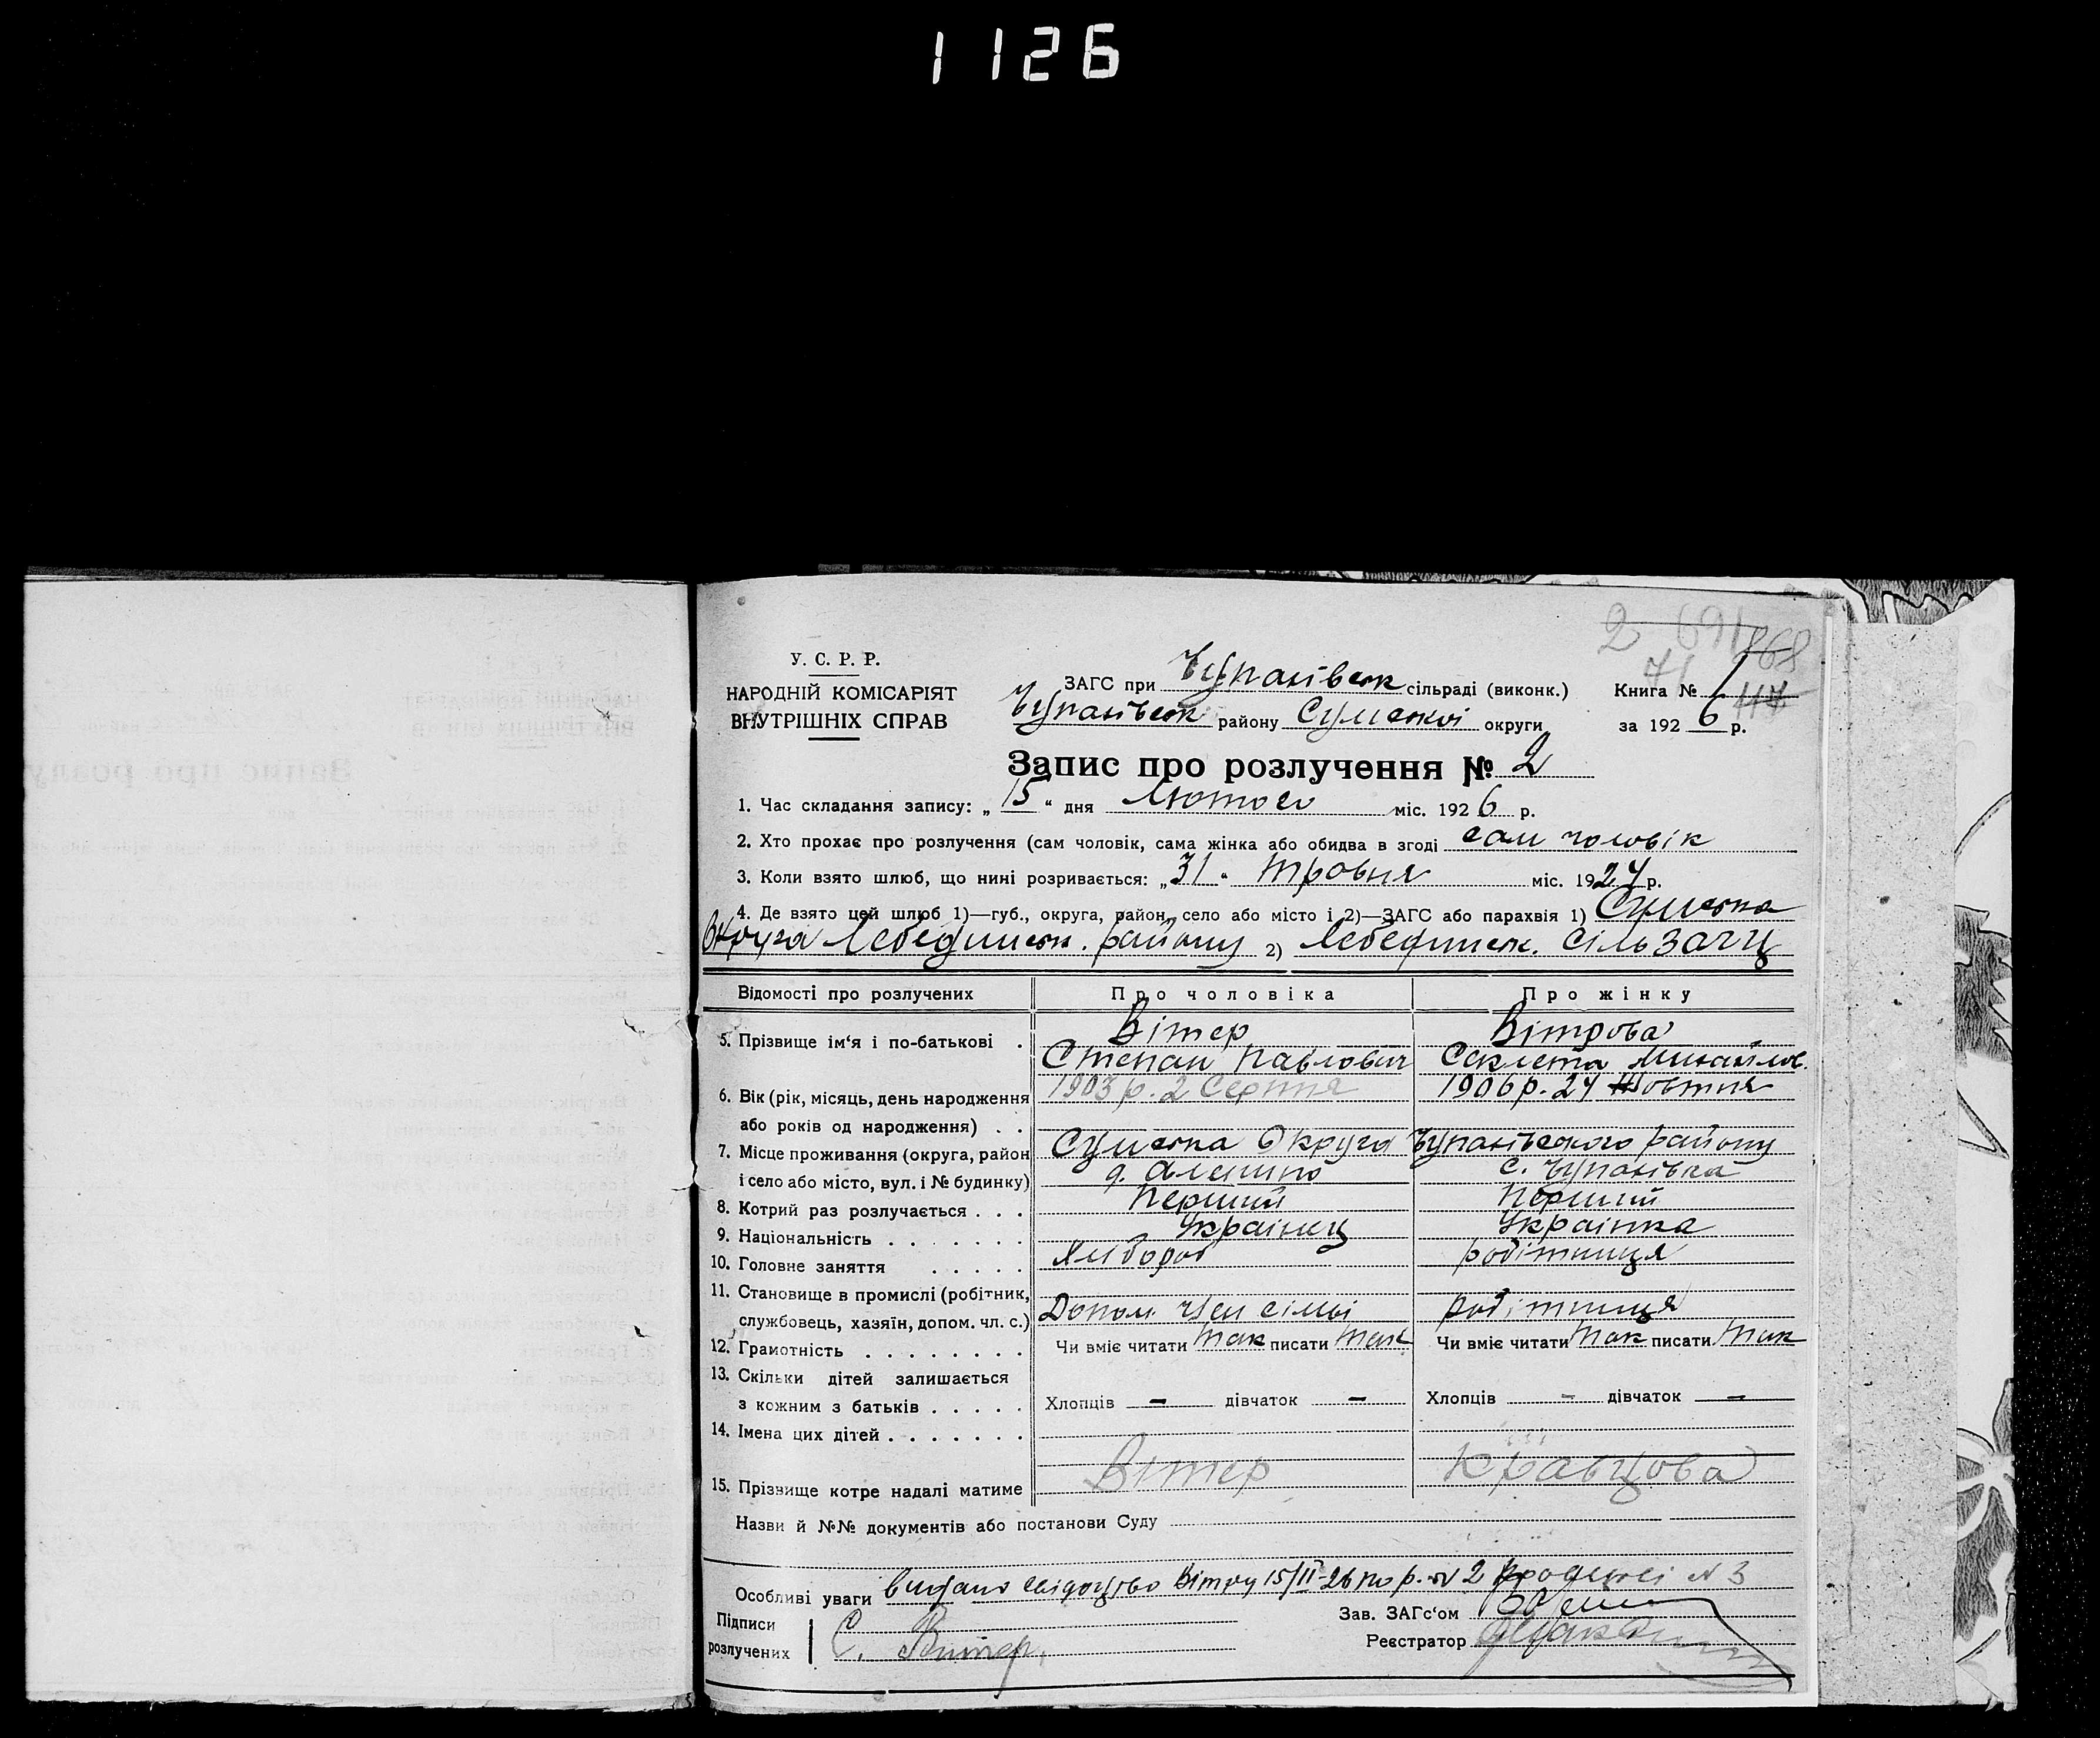 1126
2 691 868
71
117
У. С. Р. Р.
НАРОДНІЙ КОМІСАРІЯТ
ВНУТРІШНІХ СПРАВ
ЗАГС при Чупахівськ сільраді (виконк.) Книга № 1
Чупахівськ району Сумської округи за 1926 р.
Запис про розлучення № 2
1. Час складання запису: „15“ дня Лютого міс. 1926 р.
2. Хто прохає про розлучення (сам чоловік, сама жінка або обидва в згоді сам чоловік
3. Коли взято шлюб, що нині розривається: „31“ травня міс. 1924 р.
4. Де взято цей шлюб 1)—губ., округа, район, село або місто і 2)—ЗАГС або парахвія 1) Сумська
Округа Лебединськ. району 2) Лебединськ. сільзагц
Відомості про розлучених Про чоловіка Про жінку
5. Прізвище ім‘я і по-батькові . Вітер Вітрова
Степан Павлович Секлета Михайлов.
6. Вік (рік, місяць, день народження 1903 р. 2 Серпня 1906 р. 24 Жовтня
або років од народження) . .
7. Місце проживання (округа, район Сумська Округа Чупахівського району
і село або місто, вул. і № будинку) с. Чупахівка
8. Котрий раз розлучається . . . Перший Перший
9. Національність . . . . . . . Українец Українка
10. Головне заняття . . . . . Хлібороб робітниця
11. Становище в промислі (робітник, Допом. член сімьі робітниця
службовець, хазяїн, допом. чл. с.)
12. Грамотність . . . . . . . . Чи вміє читати так писати так Чи вміє читати так писати так
13. Скільки дітей залишається
з кожним з батьків . . . . . Хлопців — дівчаток — Хлопців — дівчаток —
14. Імена цих дітей . . . . . . .
15. Прізвище котре надалі матиме Вітер Кравцова
Назви й №№ документів або постанови Суду
Особливі уваги видано свідоцтво Вітру 15/II-26 по р. № 2 № 3
Підписи
розлучених С. Витер,
Зав. ЗАГс‘ом
Реєстратор